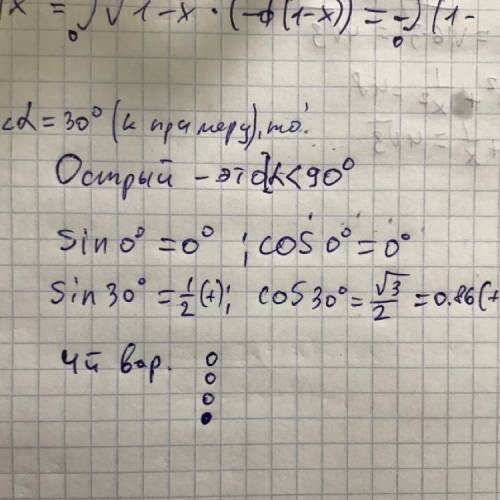 x = ₀∫ √1-x · (-d(1-x)) = -₀∫ (1-
α = 30° (к примеру), то:
Острый - это α < 90°
sin 0° = 0° ; cos 0° = 0°
sin 30° = 1/2 (+); cos 30° = √3/2 = 0.86 (+
4й вар.